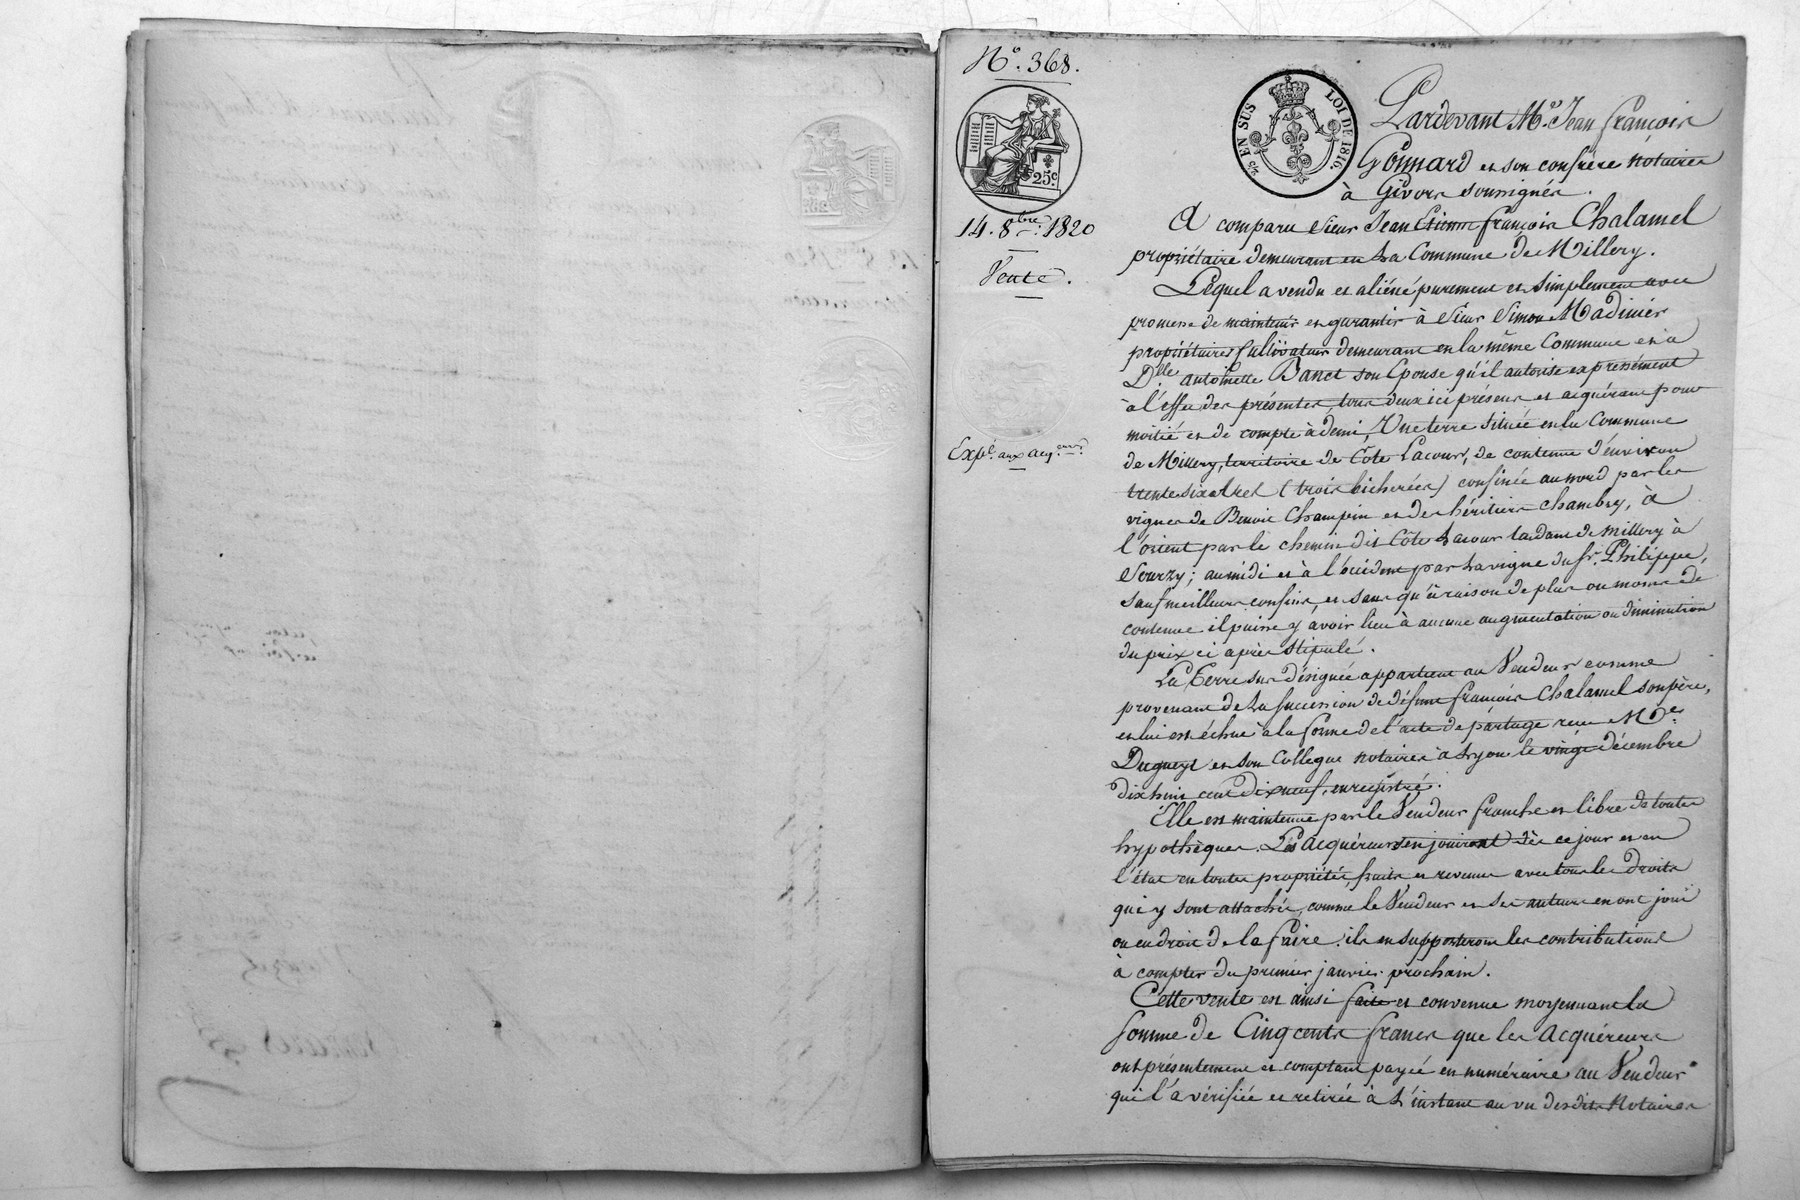 N.° 368.
25 EN SUS LOI DE 1816.
25 c
14. 8bre 1820
Vente.
Expé. aux acqeurs.
Pardevant Me. Jean françois
Gonnard et son confrère notaires
à Givors soussignés.
A comparu Sieur Jean Etienne françois Chalamel
propriétaire demeurant en la Commune de Millery.
Lequel a vendu et aliéné purement et simplement avec
promesse de maintenir et garantir à Sieur Simon Madinier
propriétaire Cultivateur demeurant en la même Commune et à
Dlle. antoinette Banet son Epouse qu'il autorise expressément
à l'effet des présentes, tous deux ici présens et acquérans pour
moitié et de compte à demi, Une terre située en la Commune
de Millery, territoire de Côte Lacour, de contenue d'environ
trente six ares (trois bicherées) confinée au nord par les
vignes de Benoit Champin et des héritiers Chambry, à
l'orient par le chemin dit Côte Lacour tendant de Millery à
Sourzy; au midi et à l'occident par la vigne du Sr. Philippe,
sauf meilleurs confins, et sans qu'à raison de plus ou moins de
contenue il puisse y avoir lieu à aucune augmentation ou diminution
du prix ci après stipulé.
La Terre sus désignée appartient au Vendeur comme
provenant de la succession de défunt françois Chalamel son père,
et lui est échue à la forme de l'acte de partage reçu Me.
Dugueyt et son Collegue notaires à Lyon le vingt décembre
dix huit cent dix neuf, enregistré.
Elle est maintenue par le Vendeur franche et libre de toutes
hypothèques. Les acquéreurs en jouiront dès ce jour et en
l'état en toute propriété, fruits et revenus avec tous les droits
qui y sont attachés, comme le Vendeur et ses auteurs en ont joui
ou eu droit de la faire. ils en supporteront les contributions
à compter du premier janvier prochain.
Cette vente est ainsi faite et convenue moyennant la
somme de Cinq cents francs que les acquéreurs
ont présentement et comptant payée en numéraire au Vendeur
qui l'a vérifiée et retirée à l'instant au vu desdits Notaires